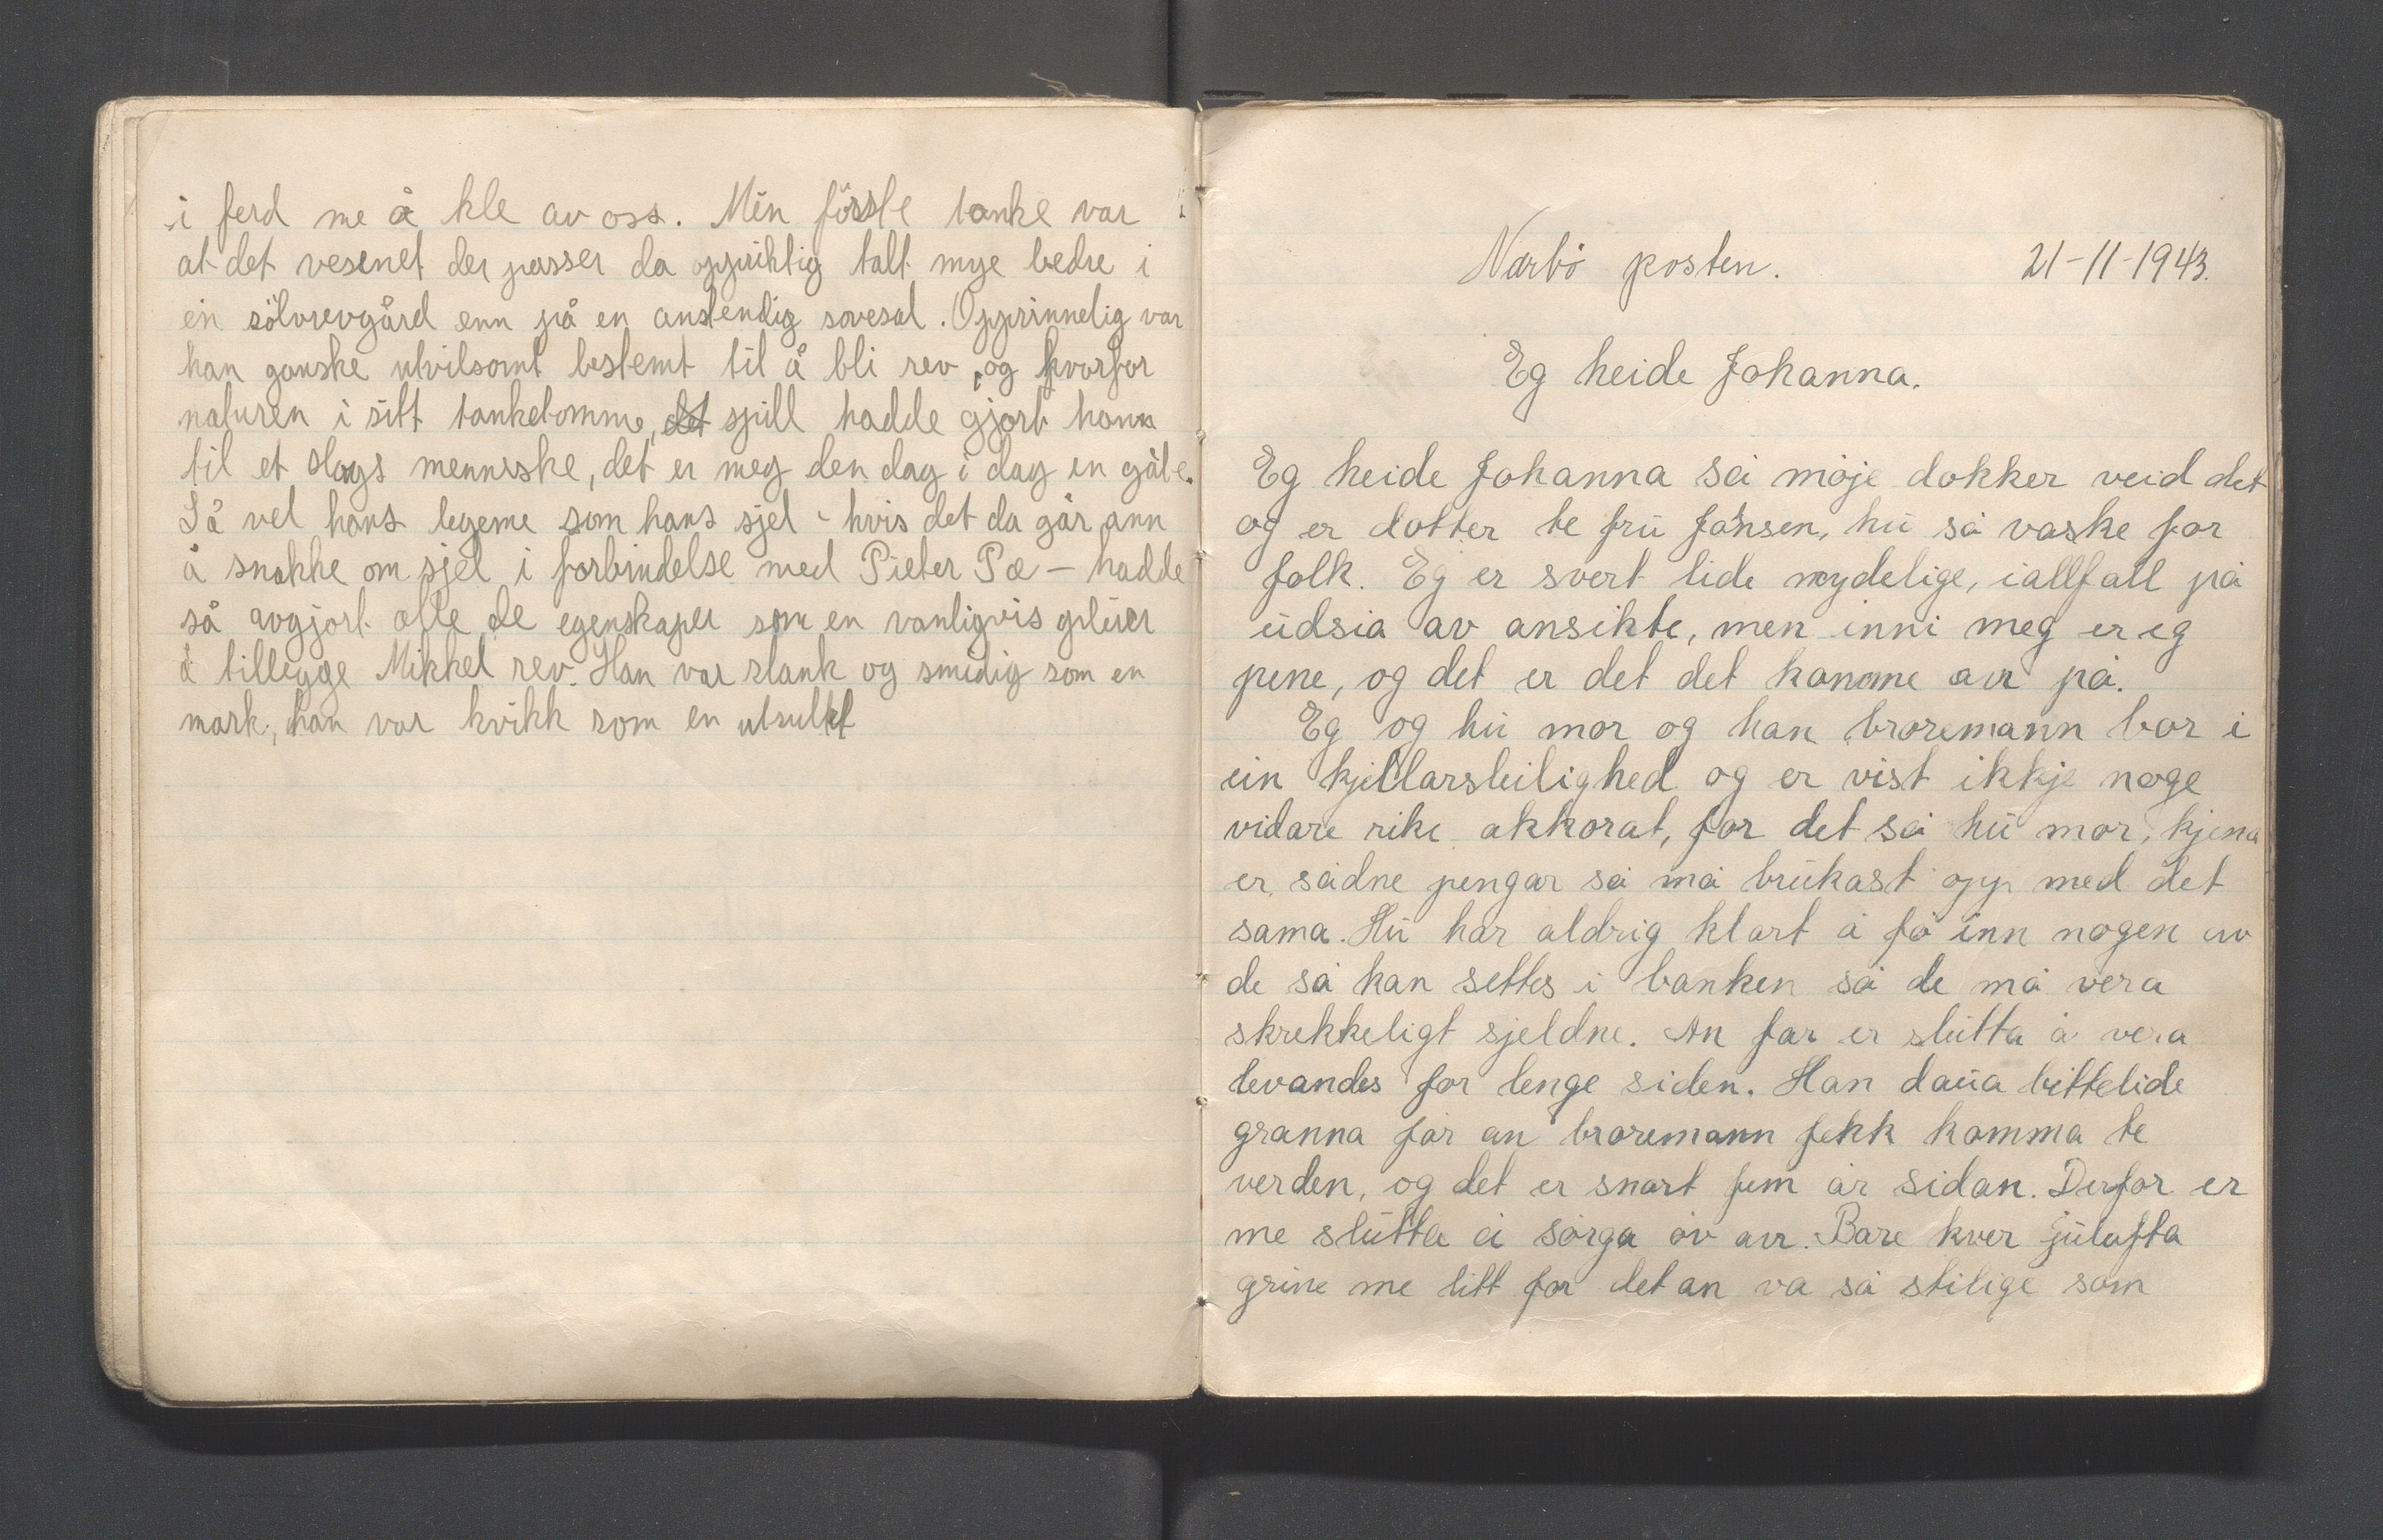 i ferd me å kle av oss. Min förste tanke var
at det vesenet der passer da oppriktig talt mye bedre i
ein sölvrevgård enn på en anstendig sovesal. Opprinnelig var
han ganske utvilsomt bestemt til å bli rev, og kvorfor
naturen i sitt tanketomme, det spill hadde gjort hann
til et slags menneske, det er meg den dag i dag en gåte.
Så vel hans legeme som hans sjel - hvis det da går ann
å snakke om sjel i forbindelse med Pieter Pæ - hadde
så avgjort alle de egenskaper som en vanligvis pleier
å tillegge Mikkel rev. Han var slank og smidig som en
mark, han var kvikk som en utsulkt
Narbö posten. 21-11-1943.
Eg heide Johanna.
Eg heide Johanna så möje dokker veid det
og er dotter te fru Jansen, hu så vaske for
folk. Eg er svert lide nydelige, iallfall på
udsia av ansikte, men inni meg er eg
pene, og det er det det komme an på.
Eg og hu mor og han broremann bor i
ein kjellarsleilighed og er vist ikkje noge
vidare rike akkorat, for det så hu mor, kjena
er sådne pengar så må brukast opp med det
sama. Hu har aldrig klart å få inn nogen av
de så kan settes i banken så de må vera
skrekkeligt sjeldne. An far er slutta å vera
levandes for lenge siden. Han daua bittelide
granna för an broremann fekk komma te
verden, og det er snart fem år sidan. Derfor er
me slutta å sörga öv an. Bare kver julafta
grine me litt for det an va så stilige som